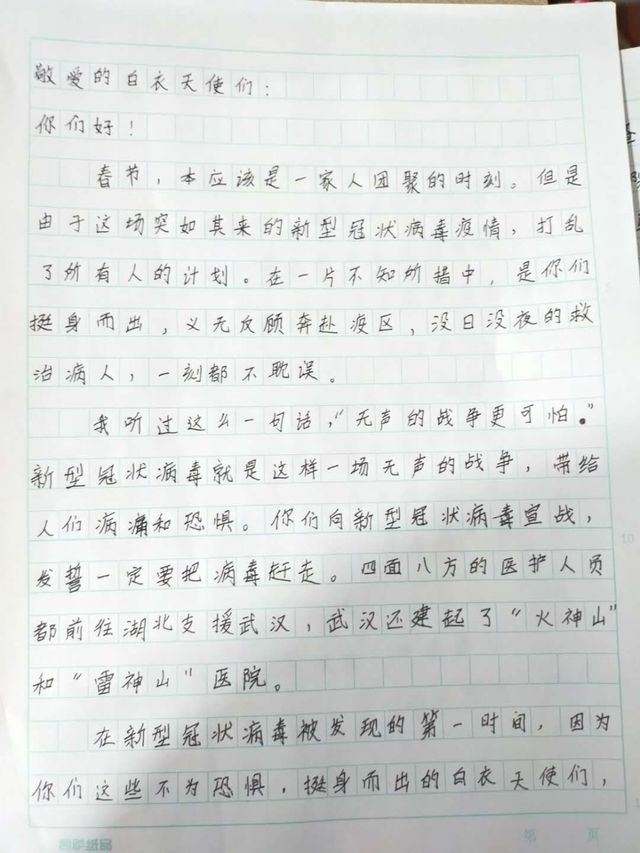 敬爱的白衣天使们:
你们好!
春节,本应该是一家人团聚的时刻。但是
由于这场突如其来的新型冠状病毒疫情,打乱
了所有人的计划。在一片不知所措中,是你们
挺身而出,义无反顾奔赴疫区,没日没夜的救
治病人,一刻都不耽误。
我听过这么一句话,“无声的战争更可怕。”
新型冠状病毒就是这样一场无声的战争,带给
人们病痛和恐惧。你们向新型冠状病毒宣战,
发誓一定要把病毒赶走。四面八方的医护人员
都前往湖北支援武汉,武汉还建起了“火神山”
和“雷神山”医院。
在新型冠状病毒被发现的第一时间,因为
你们这些不为恐惧,挺身而出的白衣天使们,
10
第 页